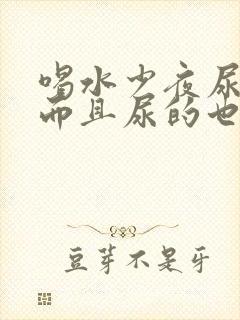 喝水少夜尿
而且尿的也
豆芽不是牙